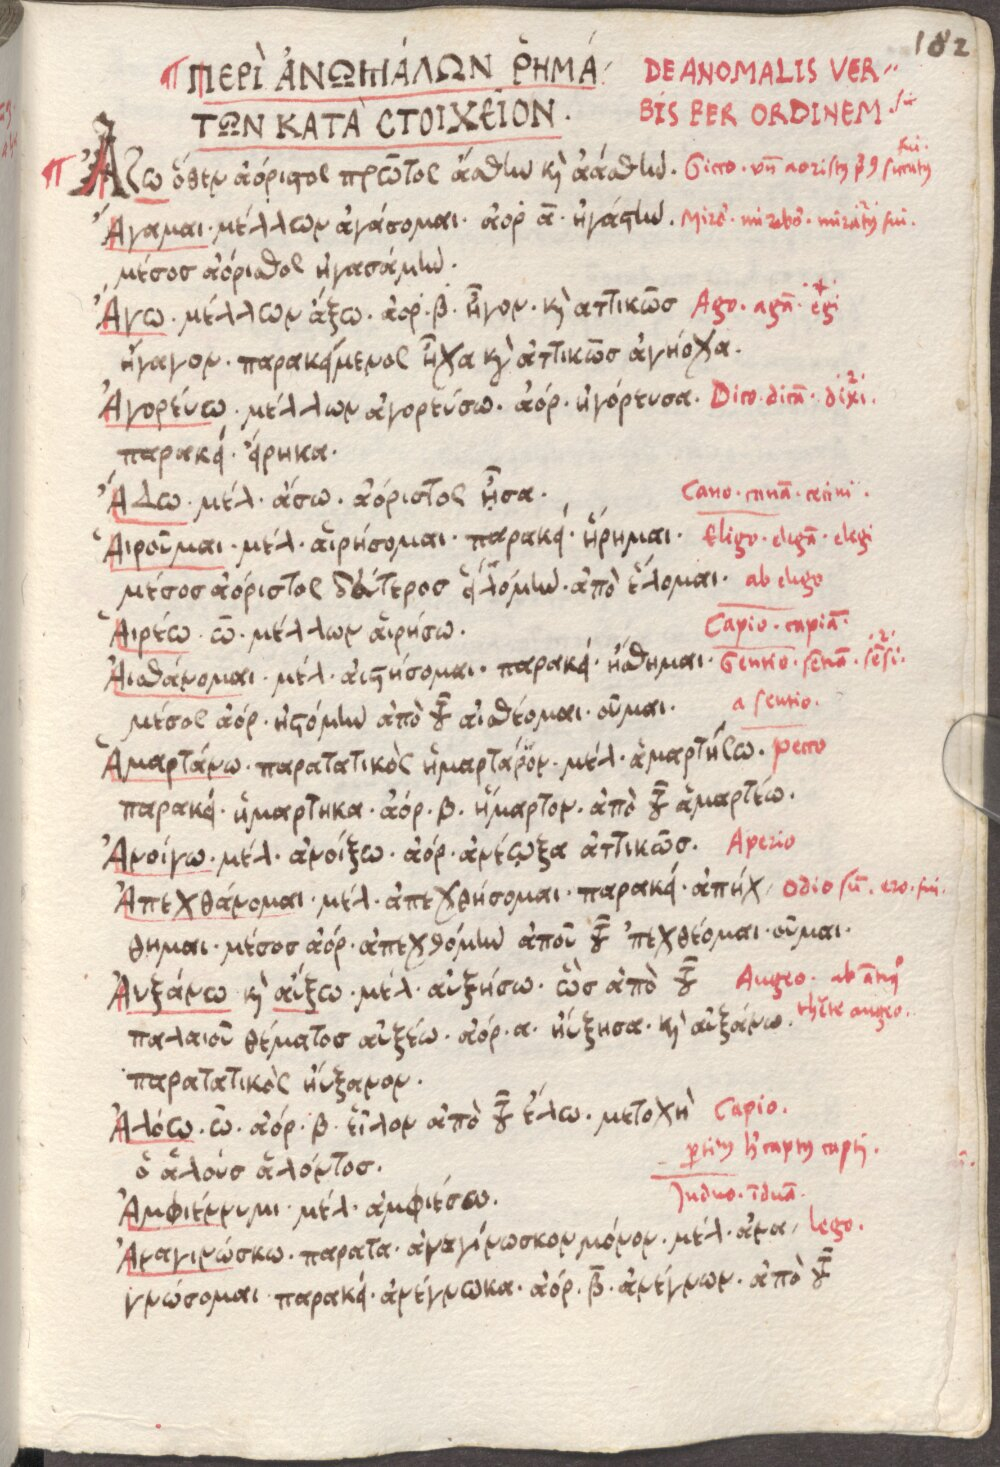 182
ΠΕΡῚ ἈΝΩΜΆΛΩΝ ῬΗΜΆ DE ANOMALIS VER
ΤΩΝ ΚΑΤᾺ ΣΤΟΙΧΕῖΟΝ. BIS PER ORDINEM.
Ἄζω ὅθεν ἀόριστος πρῶτος ἄσθην κὶ ἀάσθην.
Ἄγαμαι· μέλλων ἀγάσομαι· ἀόρ ᾱ· ἠγάσθην. Miror· mirabor· miratus fui.
μέσος ἀόριστος ἠγασάμην.
Ἄγω· μέλλων ἄξω· ἀόρ· β· ἦγον· κὶ ἀττικῶς Ago· agā· egi
ἤγαγον· παρακείμενος ἦχα κὶ ἀττικῶς ἀγήοχα.
Ἀγορεύω· μέλλων ἀγορεύσω· ἀόρ· ἠγόρευσα· Dico· dicā· dixi.
παρακεί· εἴρηκα·
Ἄδω· μέλ· ἄσω· ἀόριστος ᾖσα· Cano· canā· cecini.
Αἱροῦμαι· μέλ· αἱρήσομαι· παρακεί· ᾕρημαι· Eligo· eligā· elegi
μέσος ἀόριστος δεύτερος εἱλόμην· ἀπὸ ἕλομαι· ab eligo
Αἱρέω· ῶ· μέλλων αἱρήσω. Capio· capiā·
Αἰσθάνομαι· μέλ· αἰσθήσομαι· παρακεί· ᾔσθημαι· Sentio· sentiā· sēsi.
μέσος ἀόρ· ᾐσθόμην ἀπὸ τοῦ αἰσθέομαι· οῦμαι. a sentio.
Ἁμαρτάνω· παρατατικὸς ἡμάρτανον· μέλ· ἁμαρτήσω. pecco
παρακεί· ἡμάρτηκα· ἀόρ· β· ἥμαρτον· ἀπὸ τοῦ ἁμαρτέω.
Ἀνοίγω· μέλ· ἀνοίξω· ἀόρ· ἀνέῳξα ἀττικῶς. Aperio
Ἀπεχθάνομαι· μέλ· ἀπεχθήσομαι· παρακεί· ἀπήχ odio sū· ero· fui.
θημαι· μέσος ἀόρ· ἀπεχθόμην ἀποῦ τοῦ ᾿πεχθέομαι· οῦμαι·
Αὐξάνω κὶ αὔξω· μέλ· αὐξήσω· ὣς ἀπὸ τοῦ Augeo·
παλαιοῦ θέματος αὐξέω· ἀόρ· α· ηὔξησα· κὶ αὐξάνω. augeo.
παρατατικὸς ηὔξανον.
Ἁλόω· ῶ· ἀόρ· β· εἷλον ἀπὸ τοῦ ἕλω· μετοχὴ Capio.
ὁ ἁλοὺς ἁλόντος. captus capti.
Ἀμφιέννυμι· μέλ· ἀμφιέσω. Induo· īduā·
Ἀναγινώσκω· παρατα· ἀναγίνωσκον μόνον· μέλ· ἀνα lego.
γνώσομαι· παρακεί· ἀνέγνωκα· ἀόρ· β· ἀνέγνων· ἀπὸ τοῦ